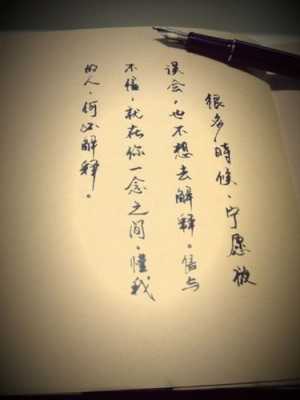 很多時候，宁愿被
误会，也不想去解释。信与
不信，就在你一念之间，懂我
的人，何必解释。